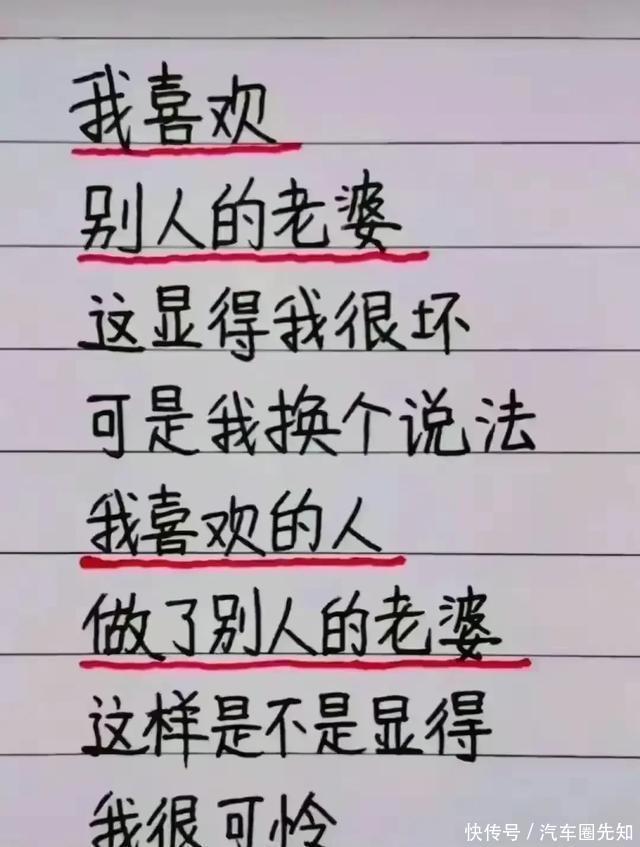 我喜欢
别人的老婆
这显得我很坏
可是我换个说法
我喜欢的人
做了别人的老婆
这样是不是显得
我很可怜
快传号/汽车圈先知